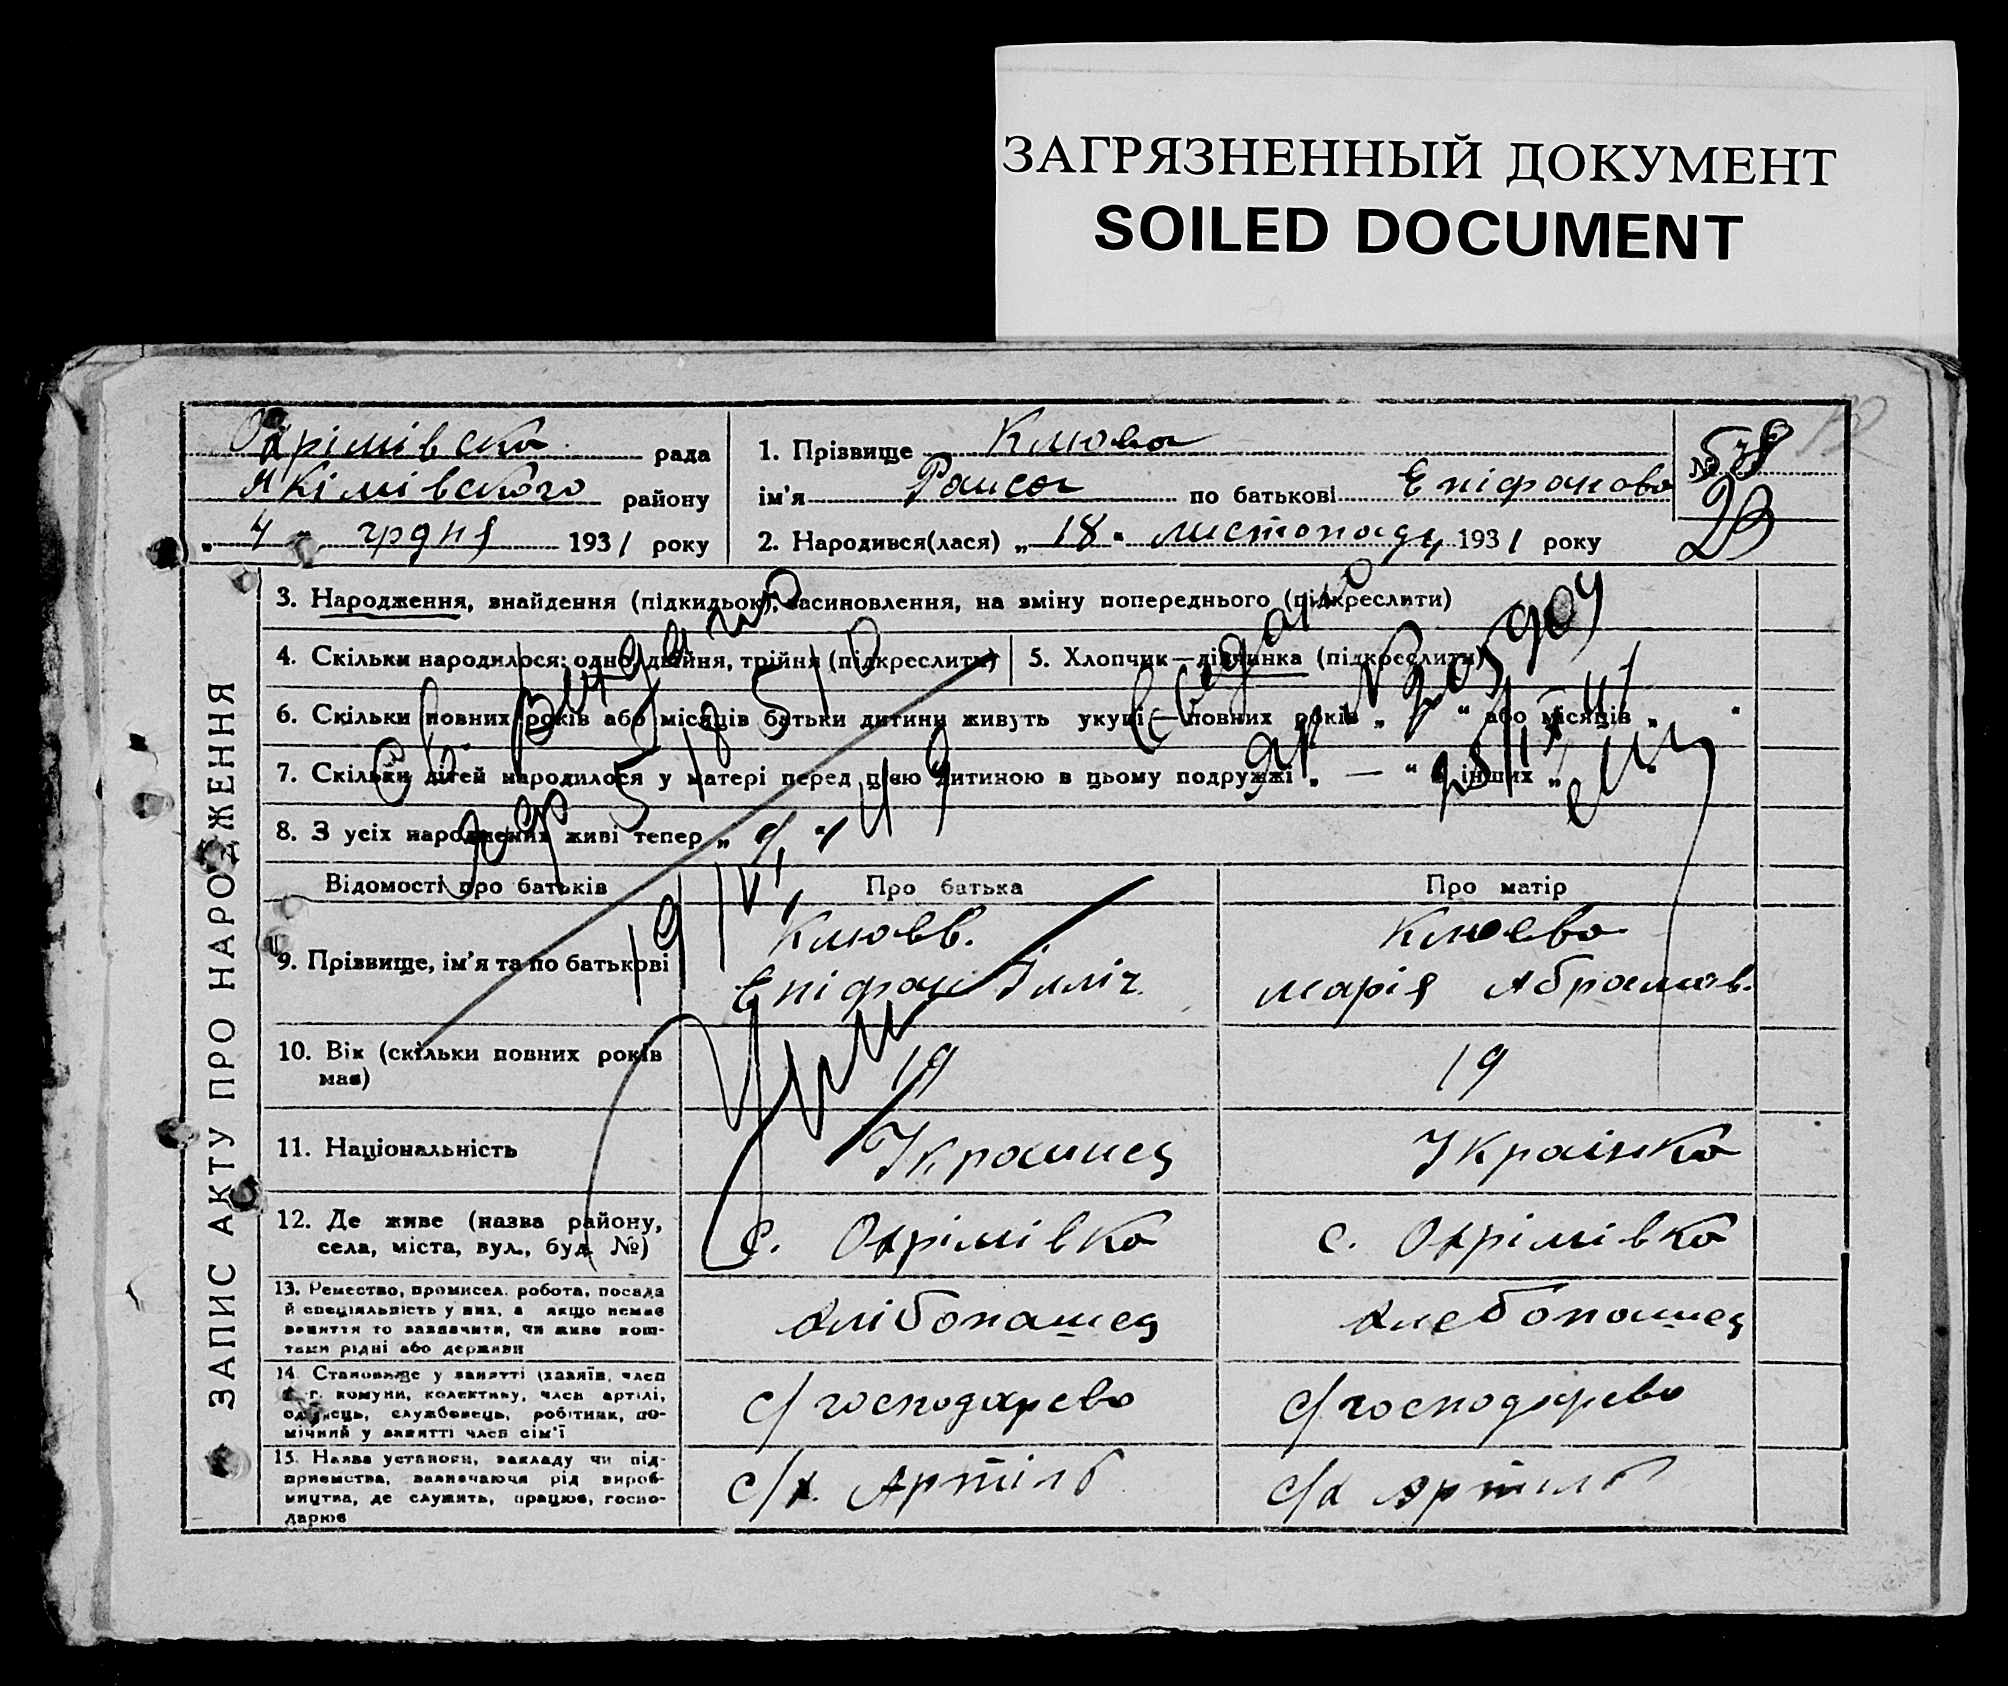 ЗАГРЯЗНЕННЫЙ ДОКУМЕНТ
SOILED DOCUMENT
Охрімівська рада
Якімівського району
„ 4 " грдня 1931 року
1. Прізвище Клюева
ім'я Раиса по батькові Епіфанова
2. Народився(лася) „ 18 " листопаду 1931 року
№ 578
23
ЗАПИС АКТУ ПРО НАРОДЖЕННЯ
3. Народження, знайдення (підкидьок), засиновлення, на зміну попереднього (підкреслити)
4. Скільки народилося: одно, двійня, трійня (підкреслити)
5. Хлопчик—дівчинка (підкреслити)
6. Скільки повних років або місяців батьки дитини живуть укупі— повних років „ " або місяців „ "
7. Скільки дітей народилося у матері перед цією дитиною в цьому подружжі „ — " в інших „
8. З усіх народжених живі тепер „
Відомості про батьків
Про батька
Про матір
9. Прізвище, ім'я та по батькові
Клюев.
Епіфан Іиліч
Клюева
Марія Абрамов.
10. Вік (скільки повних років має)
19
19
11. Національність
Украинец
Украінка
12. Де живе (назва району,
села, міста, вул., буд. №)
с. Охрімівка
с. Охрімівка
13. Ремество, промисел, робота, посада
й спеціяльність у них, а якщо немає
заняття то зазначити, чи живе кош-
тами рідні або держави
хлібопашец
хлебопашец
14. Становище у занятті (хазяїн, член
с. г. комуни, колективу, член артілі,
одинець, службовець, робітник, по-
мічний у занятті член сім'ї
с/господарево
с/господарево
15. Назва установи, закладу чи під-
приємства, зазначаючи рід вироб-
ництва, де служить, працює, госпо-
дарює
с/х Артіль
с/х артиль